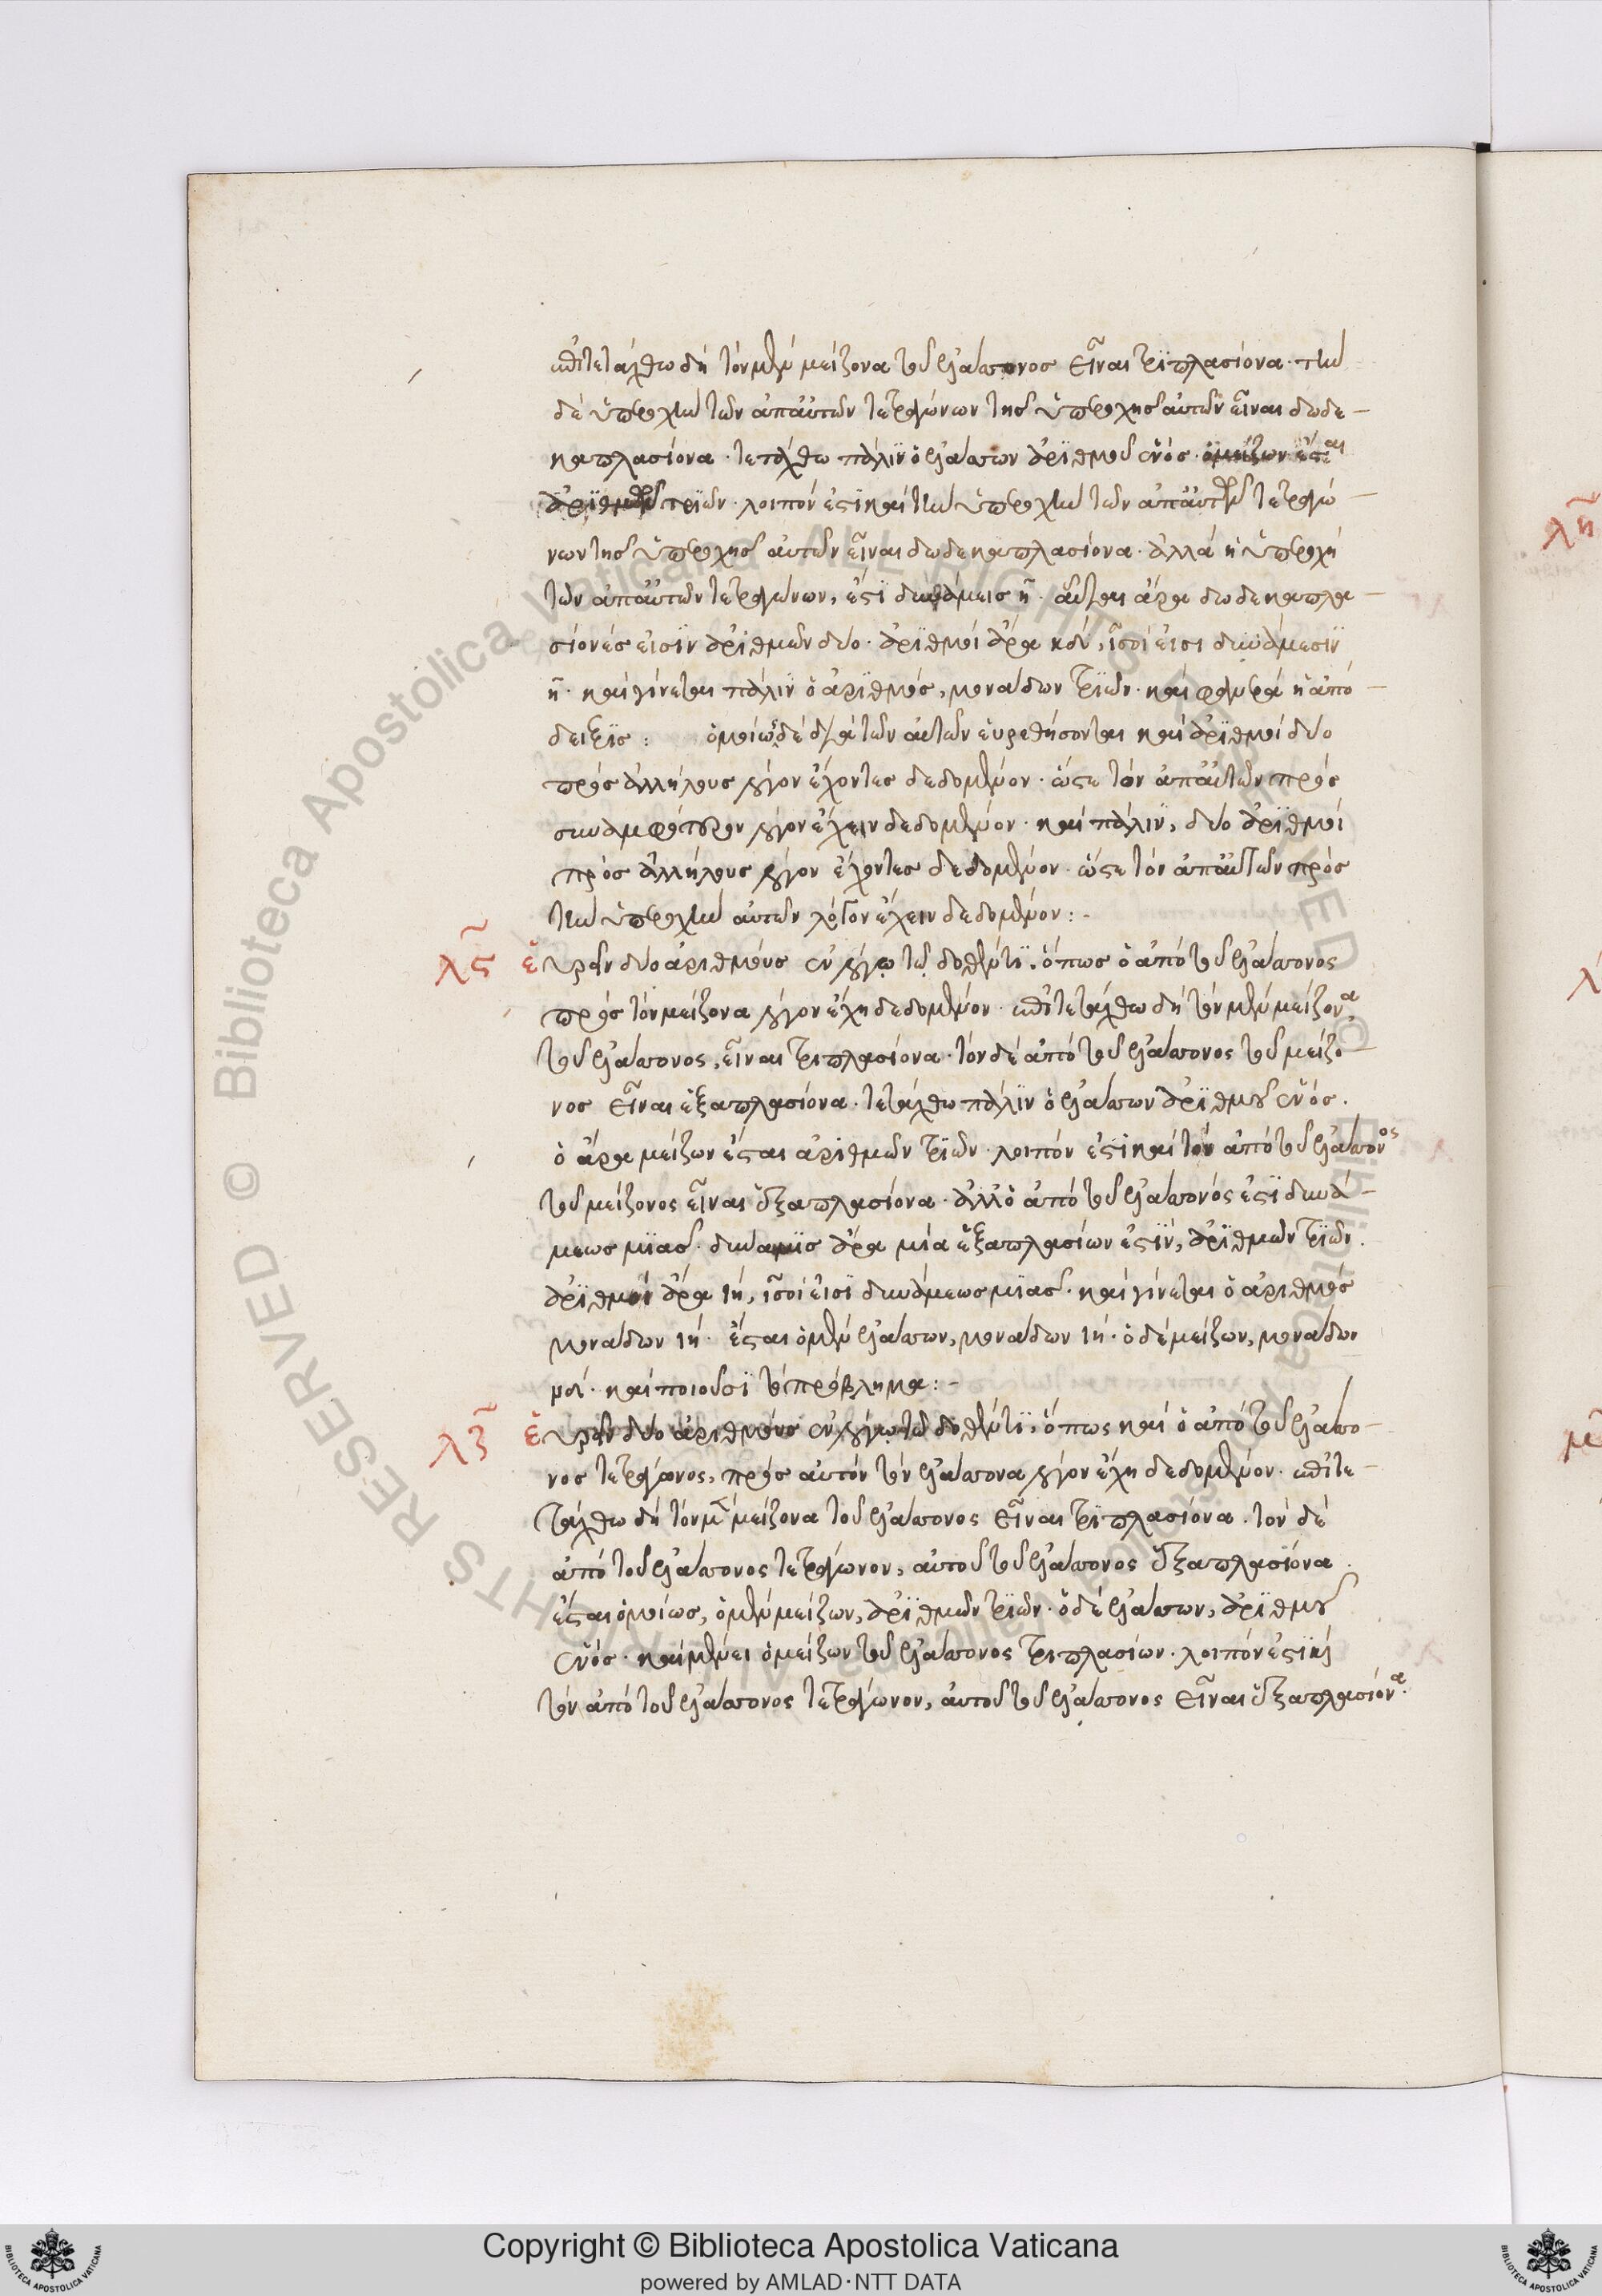 ἐπιτετάχθω δὴ τὸν μὲν μείζονα τοῦ ἐλάττονος εἶναι τριπλασίονα· τὴν
δὲ ὑπεροχὴν τῶν ἀπ' αὐτῶν τετραγώνων τῆς ὑπεροχῆς αὐτῶν εἶναι δωδε-
καπλασίονα· τετάχθω πάλιν ὁ ἐλάττων ἀριθμοῦ ἑνός· ὁ μείζων ἔσται
ἀριθμῶν τριῶν· λοιπόν ἐστι καὶ τὴν ὑπεροχὴν τῶν ἀπ' αὐτῶν τετραγώ-
νων τῆς ὑπεροχῆς αὐτῶν εἶναι δωδεκαπλασίονα· ἀλλὰ ἡ ὑπεροχὴ
τῶν ἀπ' αὐτῶν τετραγώνων, ἐστὶ δυνάμεις η· αὗται ἄρα δωδεκαπλα-
σίονές εἰσιν ἀριθμῶν δύο· ἀριθμοὶ ἄρα κδ, ἴσοι εἰσὶ δυνάμεσιν
η· καὶ γίνεται πάλιν ὁ ἀριθμός, μονάδων τριῶν· καὶ φανερὰ ἡ ἀπό-
δειξις: ὁμοίως δὲ διὰ τῶν αὐτῶν εὑρεθήσονται καὶ ἀριθμοὶ δύο
πρὸς ἀλλήλους λόγον ἔχοντες δεδομένον· ὥστε τὸν ἀπ' αὐτῶν πρὸς
συναμφότερον λόγον ἔχειν δεδομένον· καὶ πάλιν, δύο ἀριθμοὶ
πρὸς ἀλλήλους λόγον ἔχοντες δεδομένον· ὥστε τὸν ἀπ' αὐτῶν πρὸς
τὴν ὑπεροχὴν αὐτῶν λόγον ἔχειν δεδομένον:-
λς εὑρεῖν δύο ἀριθμοὺς ἐν λόγῳ τῷ δοθέντι, ὅπως ὁ ἀπὸ τοῦ ἐλάττονος
πρὸς τὸν μείζονα λόγον ἔχῃ δεδομένον· ἐπιτετάχθω δὴ τὸν μὲν μείζονα
τοῦ ἐλάττονος, εἶναι τριπλασίονα· τὸν δὲ ἀπὸ τοῦ ἐλάττονος τοῦ μείζο-
νος εἶναι ἑξαπλασίονα· τετάχθω πάλιν ὁ ἐλάττων ἀριθμοῦ ἑνός.
ὁ ἄρα μείζων ἔσται ἀριθμῶν τριῶν· λοιπόν ἐστι καὶ τὸν ἀπὸ τοῦ ἐλάττονος
τοῦ μείζονος εἶναι ἑξαπλασίονα· ἀλλ' ὁ ἀπὸ τοῦ ἐλάττονός ἐστι δυνά-
μεως μιᾶς· δύναμις ἄρα μία ἑξαπλασίων ἐστίν, ἀριθμῶν τριῶν.
ἀριθμοὶ ἄρα ιη, ἴσοι εἰσὶ δυνάμεως μιᾶς· καὶ γίνεται ὁ ἀριθμὸς
μονάδων ιη· ἔσται ὁ μὲν ἐλάττων, μονάδων ιη· ὁ δὲ μείζων, μονάδων
νδ· καὶ ποιοῦσι τὸ πρόβλημα:-
λζ εὑρεῖν δύο ἀριθμοὺς ἐν λόγῳ τῷ δοθέντι, ὅπως καὶ ὁ ἀπὸ τοῦ ἐλάττο-
νος τετράγωνος, πρὸς αὐτὸν τὸν ἐλάττονα λόγον ἔχῃ δεδομένον· ἐπιτε-
τάχθω δὴ τὸν μὲν μείζονα τοῦ ἐλάττονος εἶναι τριπλασίονα· τὸν δὲ
ἀπὸ τοῦ ἐλάττονος τετράγωνον, αὐτοῦ τοῦ ἐλάττονος ἑξαπλασίονα.
ἔσται ὁμοίως, ὁ μὲν μείζων, ἀριθμῶν τριῶν· ὁ δὲ ἐλάττων, ἀριθμοῦ
ἑνός· καὶ μένει ὁ μείζων τοῦ ἐλάττονος τριπλασίων· λοιπόν ἐστι καὶ
τὸν ἀπὸ τοῦ ἐλάττονος τετράγωνον, αὐτοῦ τοῦ ἐλάττονος εἶναι ἑξαπλασίονα.
λη
Biblioteca Apostolica Vaticana ALL RIGHTS RESERVED ©
Copyright © Biblioteca Apostolica Vaticana
powered by AMLAD·NTT DATA